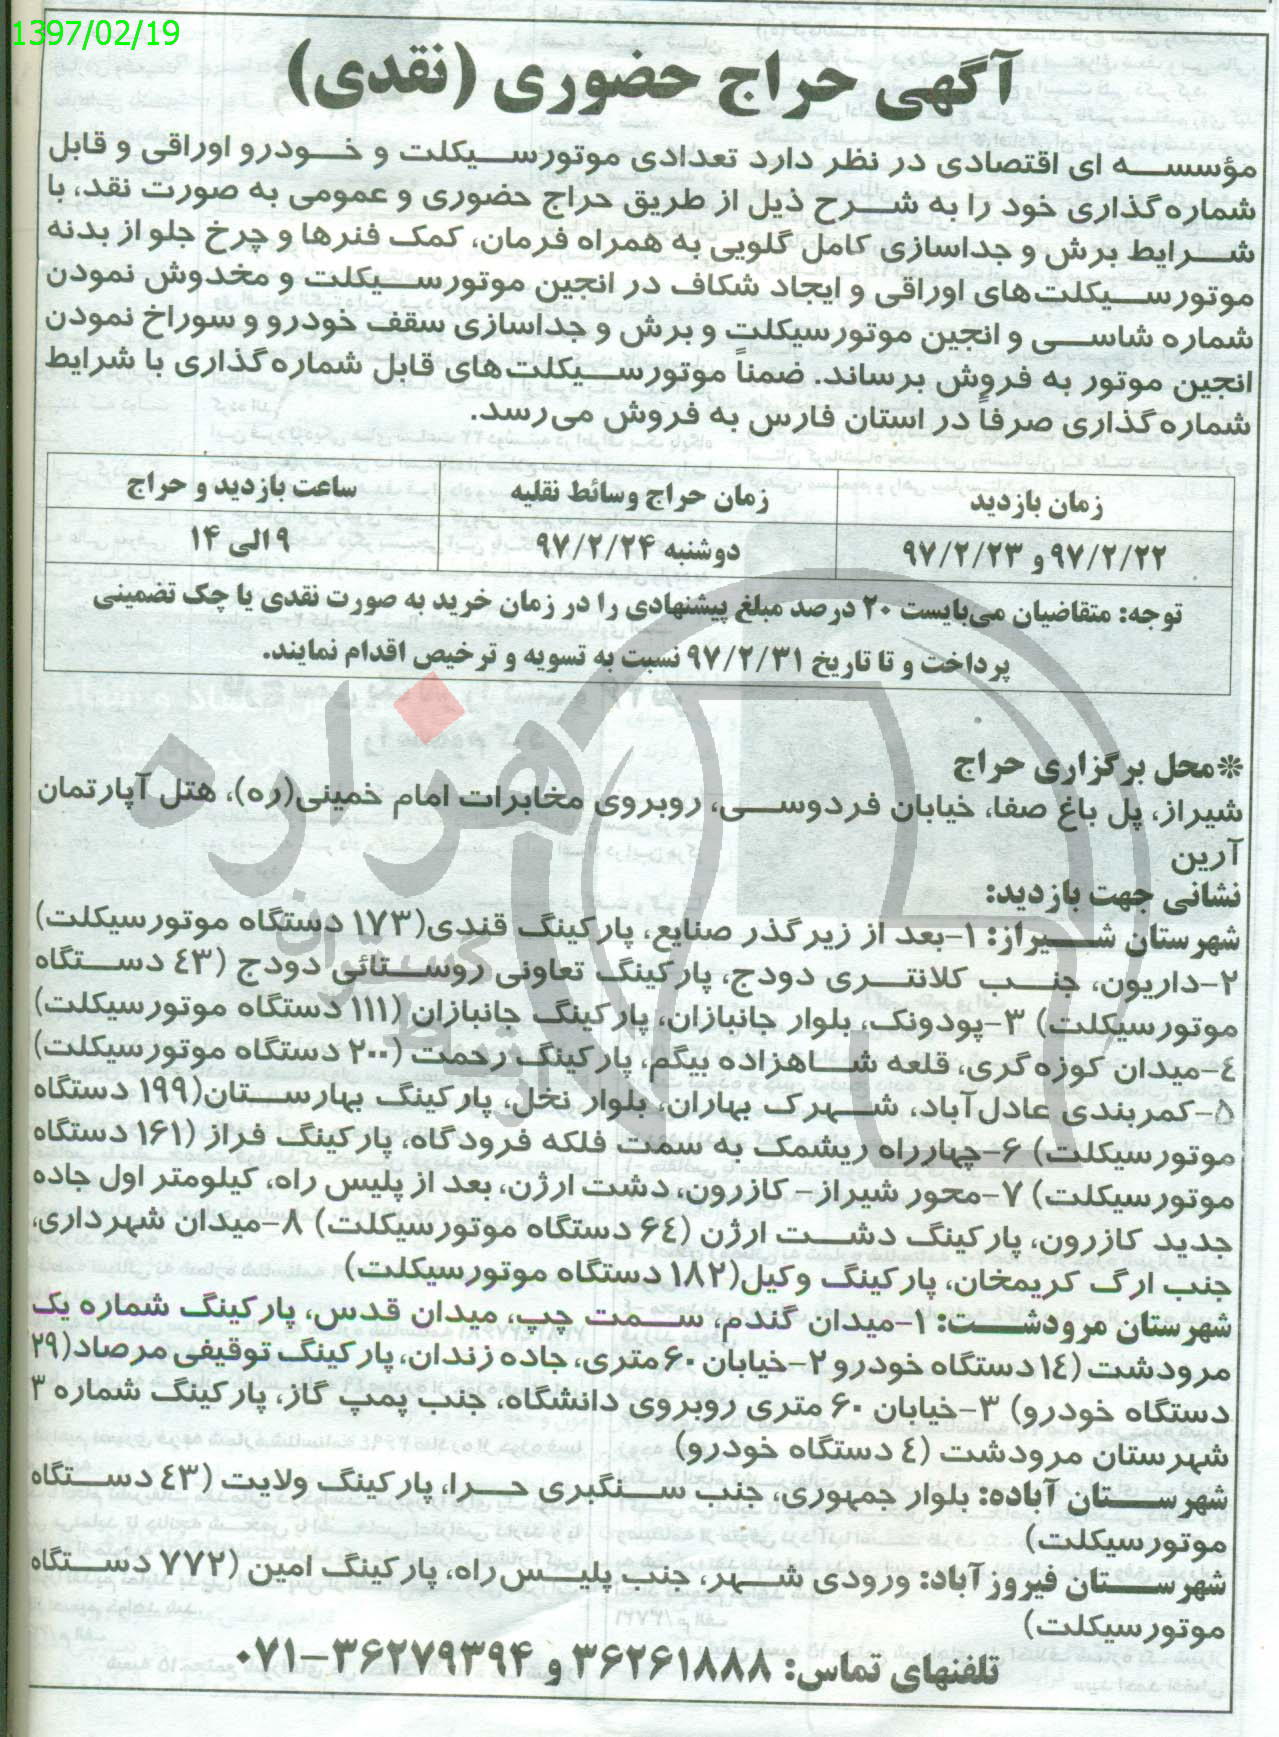 1397/02/19
آگهی حراج حضوری (نقدی)
مؤسسه ای اقتصادی در نظر دارد تعدادی موتورسیکلت و خودرو اوراقی و قابل
شماره گذاری خود را به شرح ذیل از طریق حراج حضوری و عمومی به صورت نقد، با
شرایط برش و جداسازی کامل گلویی به همراه فرمان، کمک فنرها و چرخ جلو از بدنه
موتورسیکلت‌های اوراقی و ایجاد شکاف در انجین موتورسیکلت و مخدوش نمودن
شماره شاسی و انجین موتورسیکلت و برش و جداسازی سقف خودرو و سوراخ نمودن
انجین موتور به فروش برساند. ضمناً موتورسیکلت‌های قابل شماره گذاری با شرایط
شماره گذاری صرفاً در استان فارس به فروش می‌رسد.
زمان بازدید	زمان حراج وسائط نقلیه	ساعت بازدید و حراج
۹۷/۲/۲۲ و ۹۷/۲/۲۳	دوشنبه ۹۷/۲/۲۴	۹ الی ۱۴
توجه: متقاضیان می‌بایست ۲۰ درصد مبلغ پیشنهادی را در زمان خرید به صورت نقدی یا چک تضمینی
پرداخت و تا تاریخ ۹۷/۲/۳۱ نسبت به تسویه و ترخیص اقدام نمایند.
❊محل برگزاری حراج
شیراز، پل باغ صفا، خیابان فردوسی، روبروی مخابرات امام خمینی(ره)، هتل آپارتمان
آرین
نشانی جهت بازدید:
شهرستان شیراز: ۱-بعد از زیرگذر صنایع، پارکینگ قندی(۱۷۳ دستگاه موتورسیکلت)
۲-داریون، جنب کلانتری دودج، پارکینگ تعاونی روستائی دودج (۴۳ دستگاه
موتورسیکلت) ۳-پودونک، بلوار جانبازان، پارکینگ جانبازان (۱۱۱ دستگاه موتورسیکلت)
۴-میدان کوزه گری، قلعه شاهزاده بیگم، پارکینگ رحمت (۲۰۰ دستگاه موتورسیکلت)
۵-کمربندی عادل‌آباد، شهرک بهاران، بلوار نخل، پارکینگ بهارستان(۱۹۹ دستگاه
موتورسیکلت) ۶-چهارراه ریشمک به سمت فلکه فرودگاه، پارکینگ فراز (۱۶۱ دستگاه
موتورسیکلت) ۷-محور شیراز- کازرون، دشت ارژن، بعد از پلیس راه، کیلومتر اول جاده
جدید کازرون، پارکینگ دشت ارژن (۶۴ دستگاه موتورسیکلت) ۸-میدان شهرداری،
جنب ارگ کریمخان، پارکینگ وکیل(۱۸۲ دستگاه موتورسیکلت)
شهرستان مرودشت: ۱-میدان گندم، سمت چپ، میدان قدس، پارکینگ شماره یک
مرودشت (۱۴ دستگاه خودرو ۲-خیابان ۶۰ متری، جاده زندان، پارکینگ توقیفی مرصاد(۲۹
دستگاه خودرو) ۳-خیابان ۶۰ متری روبروی دانشگاه، جنب پمپ گاز، پارکینگ شماره ۳
شهرستان مرودشت (۴ دستگاه خودرو)
شهرستان آباده: بلوار جمهوری، جنب سنگبری حرا، پارکینگ ولایت (۴۳ دستگاه
موتورسیکلت)
شهرستان فیروزآباد: ورودی شهر، جنب پلیس‌راه، پارکینگ امین (۷۷۲ دستگاه
موتورسیکلت)
تلفنهای تماس: ۳۶۲۶۱۸۸۸ و ۳۶۲۷۹۳۹۴-۰۷۱
هزاره